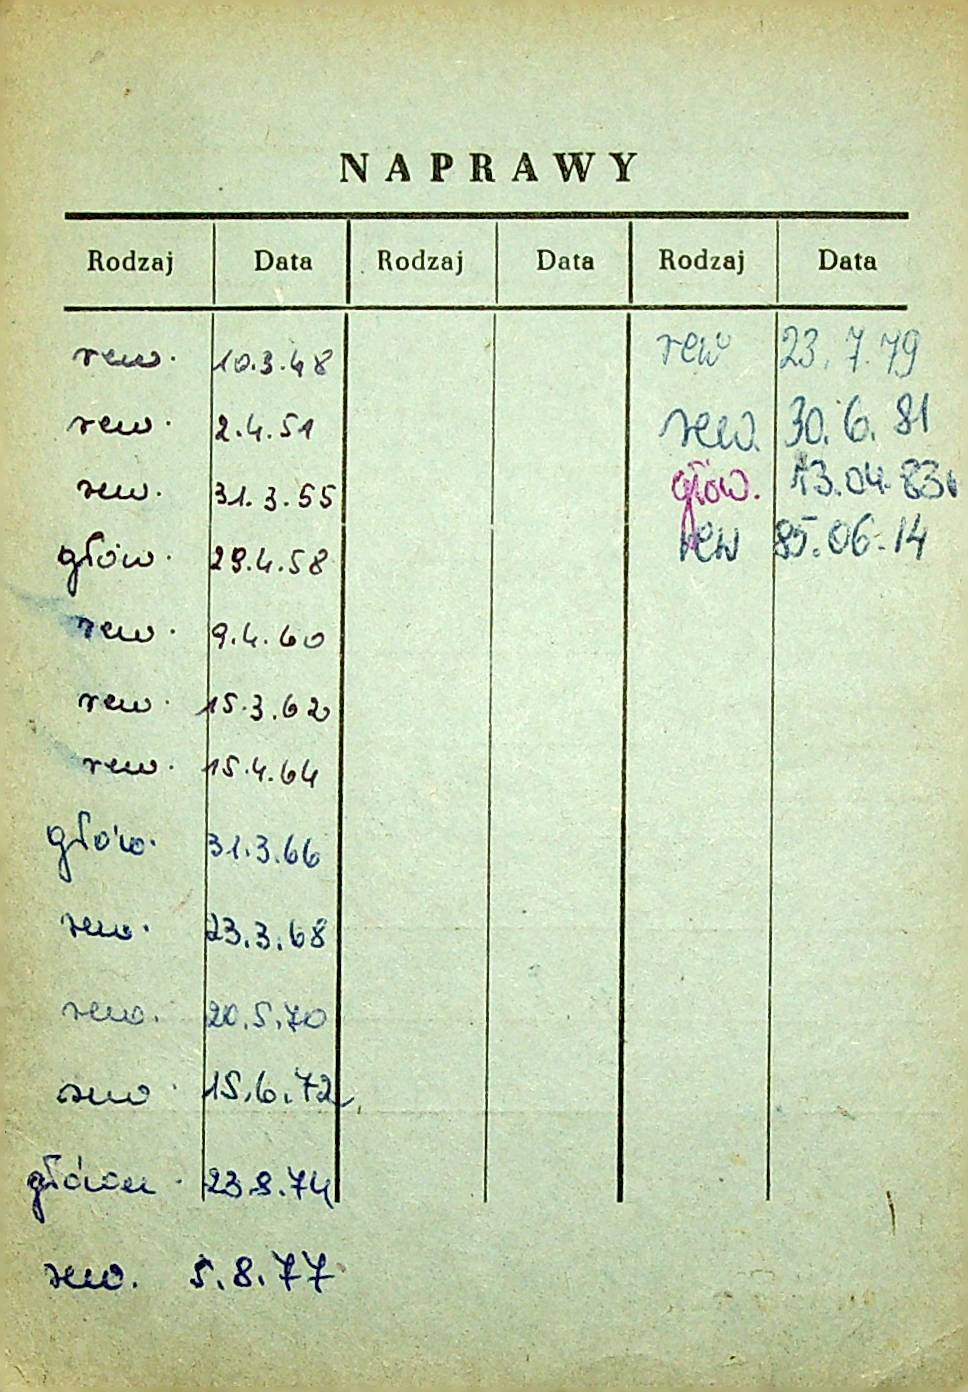 NAPRAWY
Rodzaj Data Rodzaj Data Rodzaj Data
rew. 10.3.48
rew. 2.4.51
rew. 31.3.55
głów. 29.4.58
rew. 9.4.60
rew. 15.3.62
rew. 15.4.64
głów. 31.3.66
rew. 23.3.68
rew. 20.5.70
rew. 15.6.72
23.9.74
rew. 5.8.77
rew 23.7.79
rew. 30.6.81
głów. 13.04.83
rew 85.06.14